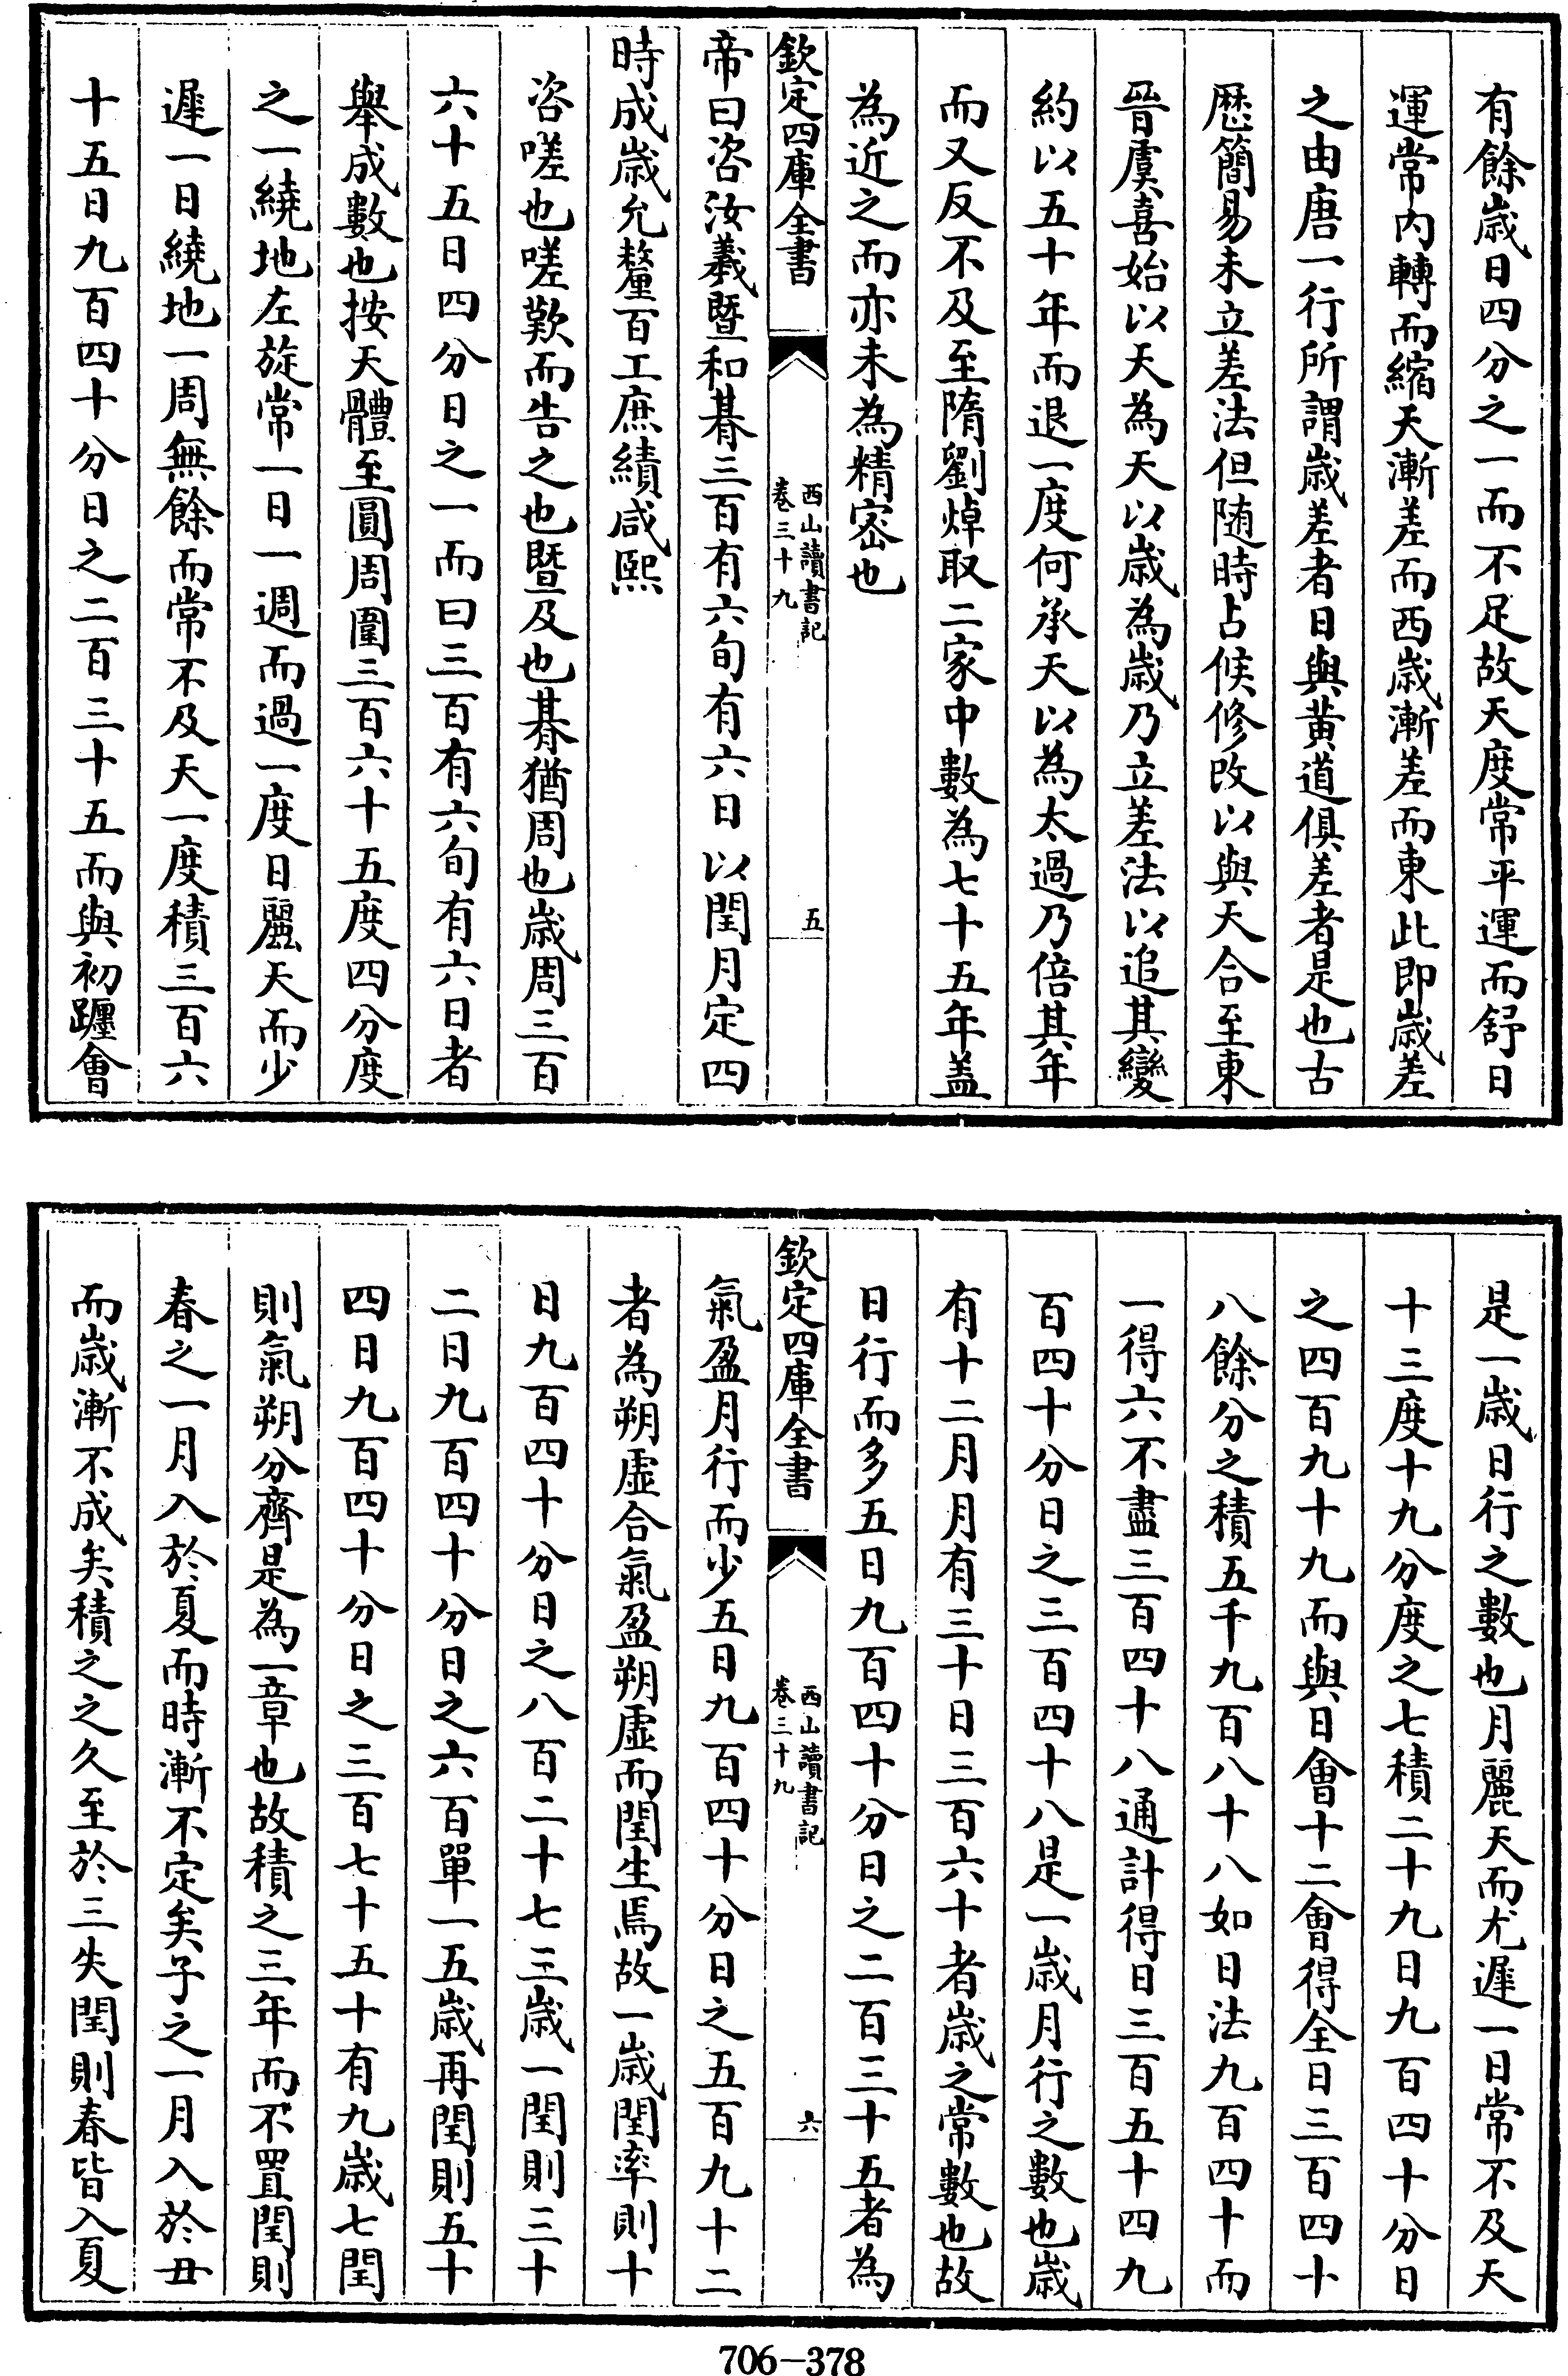 有餘歲日四分之一而不足故天度常平運而舒日
運常內轉而縮天漸差而西歲漸差而東此即歲差
之由唐一行所謂歲差者日與黃道俱差者是也古
歷簡易未立差法但随時占候修改以與天合至東
晉虞喜始以天為天以歲為歲乃立差法以追其變
約以五十年而退一度何承天以為太過乃倍其年
而又反不及至隋劉焯取二家中數為七十五年盖
為近之而亦未為精宻也
欽定四庫全書
西山讀書記
卷三十九
五
帝曰咨汝羲暨和朞三百有六旬有六日以閏月定四
時成歲允釐百工庶績咸熙
咨嗟也嗟歎而告之也暨及也朞猶周也歲周三百
六十五日四分日之一而曰三百有六旬有六日者
舉成數也按天體至圓周圍三百六十五度四分度
之一繞地左旋常一日一週而過一度日麗天而少
遲一日繞地一周無餘而常不及天一度積三百六
十五日九百四十分日之二百三十五而與初躔會
是一歲日行之數也月麗天而尤遲一日常不及天
十三度十九分度之七積二十九日九百四十分日
之四百九十九而與日會十二會得全日三百四十
八餘分之積五千九百八十八如日法九百四十而
一得六不盡三百四十八通計得日三百五十四九
百四十分日之三百四十八是一歲月行之數也歲
有十二月月有三十日三百六十者歲之常數也故
日行而多五日九百四十分日之二百三十五者為
欽定四庫全書
西山讀書記
卷三十九
六
氣盈月行而少五日九百四十分日之五百九十二
者為朔虛合氣盈朔虛而閏生焉故一歲閏率則十
日九百四十分日之八百二十七三歲一閏則三十
二日九百四十分日之六百單一五歲再閏則五十
四日九百四十分日之三百七十五十有九歲七閏
則氣朔分齊是為一章也故積之三年而不置閏則
春之一月入於夏而時漸不定矣子之一月入於丑
而歲漸不成矣積之之久至於三失閏則春皆入夏
706-378